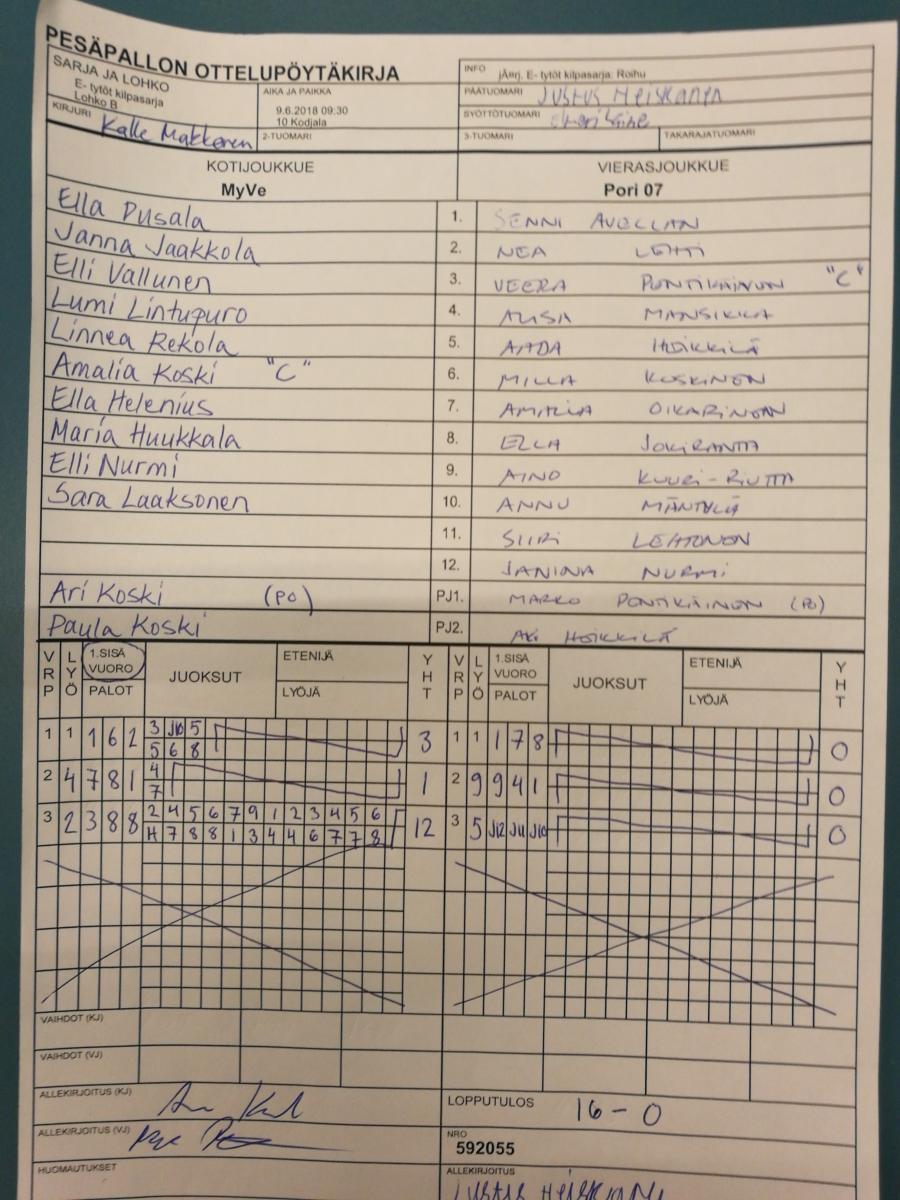 PESÄPALLON OTTELUPÖYTÄKIRJA
SARJA JA LOHKO
E- tytöt kilpasarja
Lohko B
AIKA JA PAIKKA
9.6.2018 09:30
10 Kodjala
INFO jÄmj. E- tytöt kilpasarja: Roihu
PÄÄTUOMARI Justus Heiskanen
SYÖTTÖTUOMARI
KIRJURI Kalle Makkonen
2-TUOMARI
3-TUOMARI
TAKARAJATUOMARI
KOTIJOUKKUE VIERASJOUKKUE
MyVe Pori 07
Ella Pusala 1. SENNI AVELLAN
Janna Jaakkola 2. NEA LEHTI
Elli Vallunen 3. VEERA PONTIKÄINEN "C"
Lumi Lintupuro 4. ALISA MANSIKKA
Linnea Rekola 5. AADA HEIKKILÄ
Amalia Koski "C" 6. MILLA KOSKINEN
Ella Helenius 7. AMALIA OIKARINEN
Maria Huukkala 8. ELLA JOKIRANTA
Elli Nurmi 9. AINO KUURI-RIUTTA
Sara Laaksonen 10. ANNU MÄNTYLÄ
11. SIIRI LEHTONEN
12. JANINA NURMI
Ari Koski (PO) PJ1. MARKO PONTIKÄINEN (PO)
Paula Koski PJ2. AKI HEIKKILÄ
VRP LYÖ 1.SISÄ VUORO PALOT JUOKSUT ETENIJÄ LYÖJÄ YHT VRP LYÖ 1.SISÄ VUORO PALOT JUOKSUT ETENIJÄ LYÖJÄ YHT
1 1 1 6 2 3 J10 5 3 1 1 1 7 8 0
5 6 8
2 4 7 8 1 4 1 2 9 9 4 1 0
7
3 2 3 8 8 2 4 5 6 7 9 1 2 3 4 5 6 12 3 5 J12 J11 J10 0
H 7 8 8 1 3 4 4 6 7 7 8
VAIHDOT (KJ)
VAIHDOT (VJ)
ALLEKIRJOITUS (KJ)
LOPPUTULOS 16-0
ALLEKIRJOITUS (VJ)
NRO
592055
HUOMAUTUKSET
ALLEKIRJOITUS
JUSTUS HEISKANEN